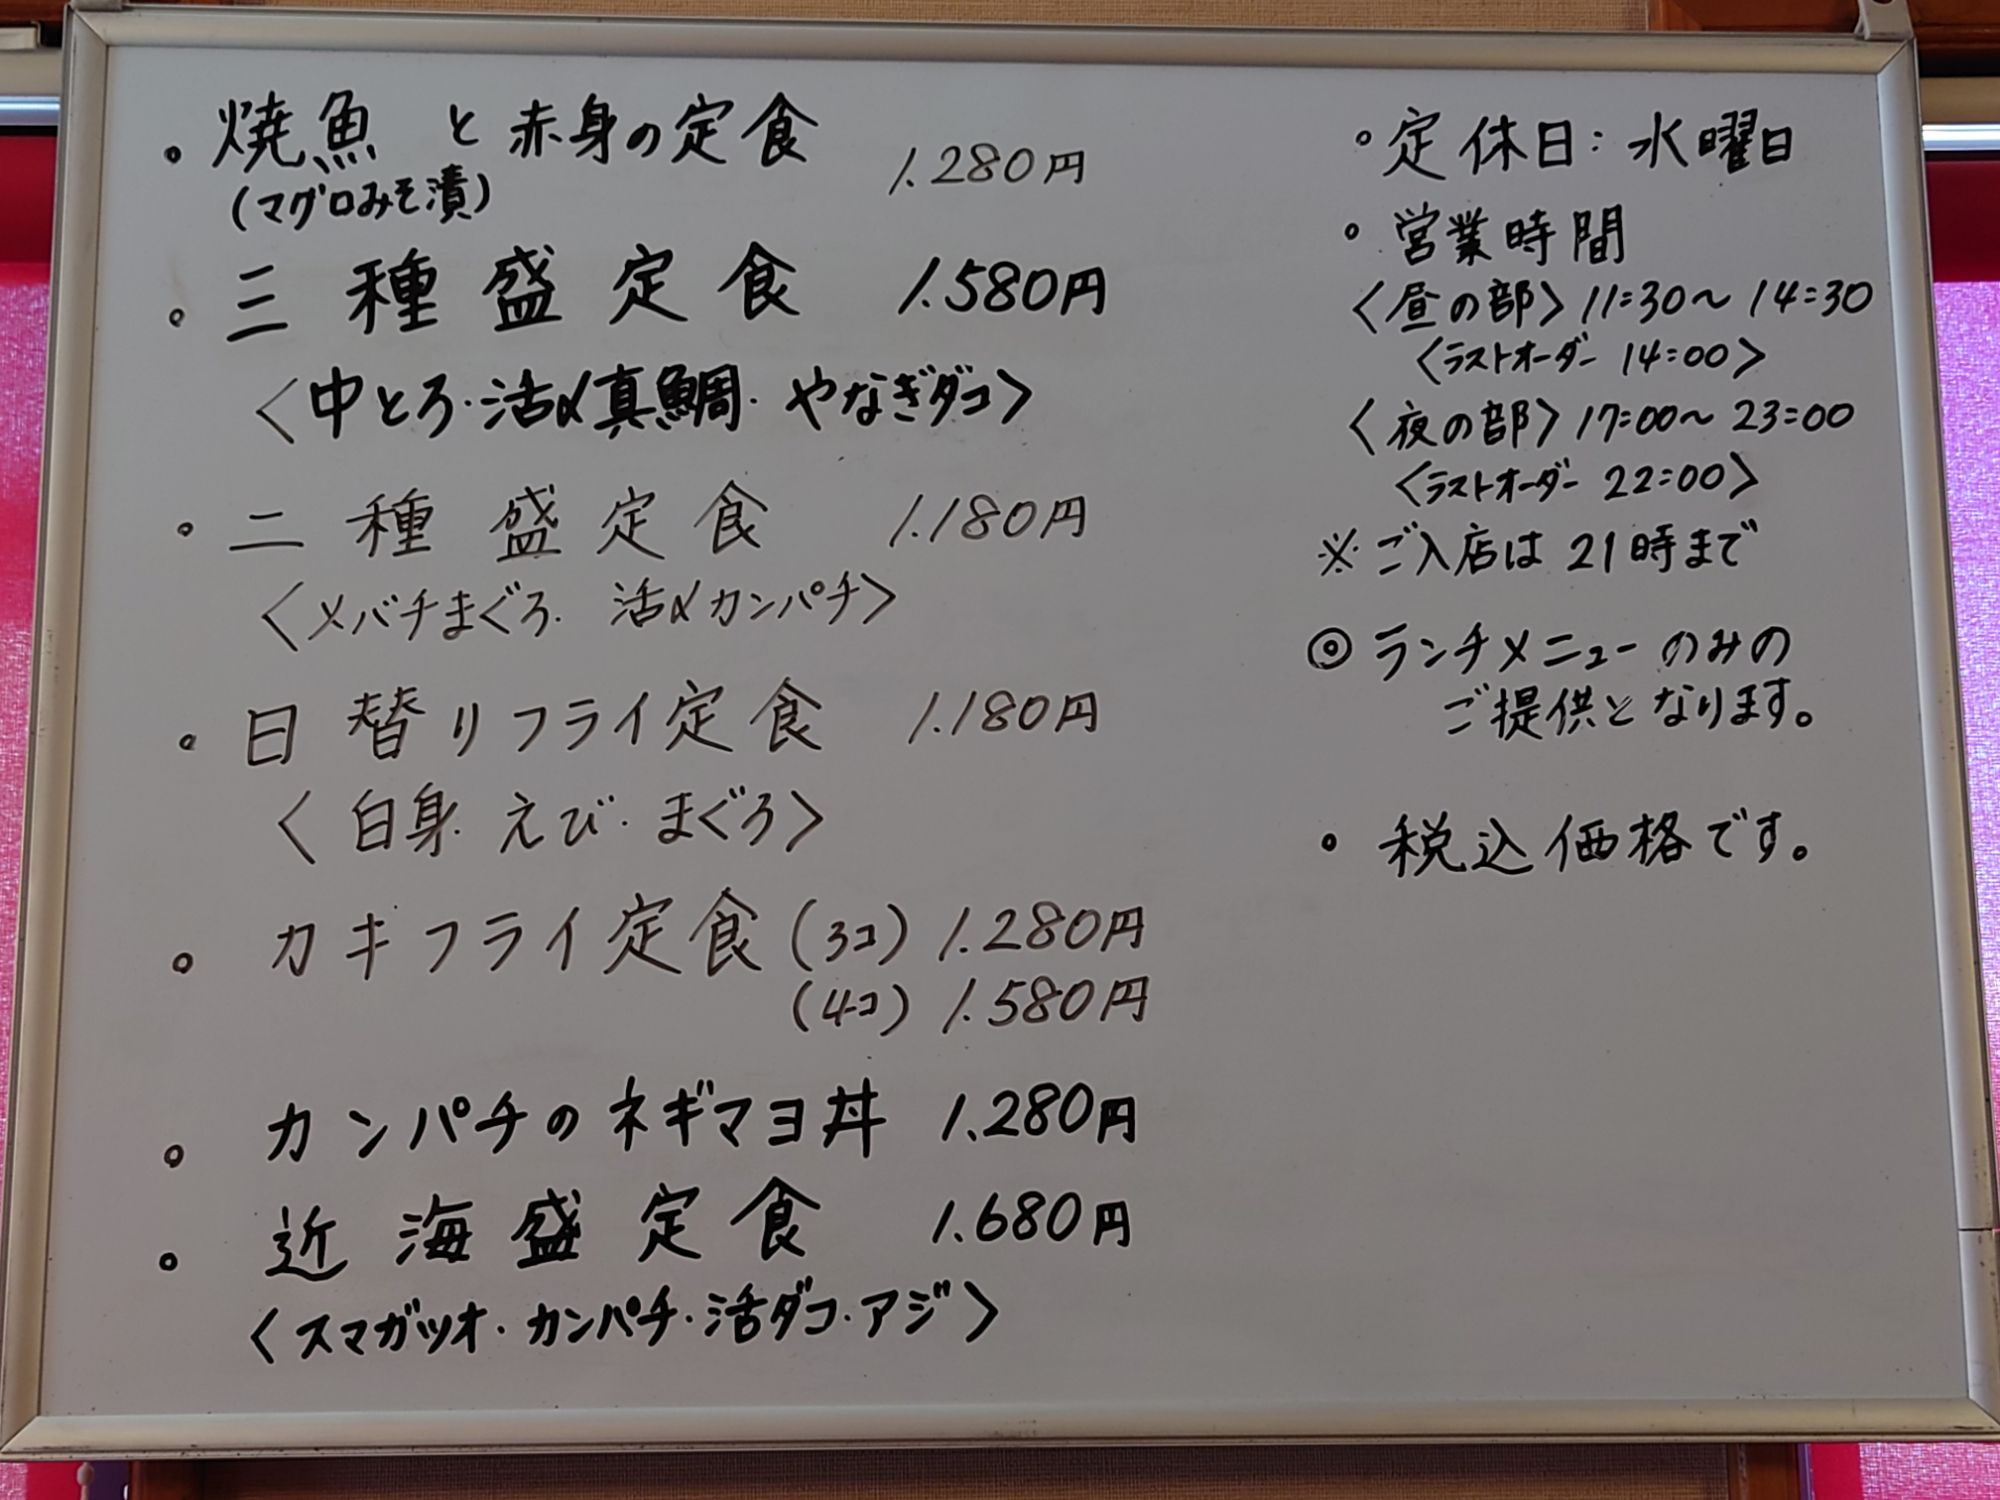 。焼魚 と 赤身の定食 1.280円
(マグロみそ漬)
。三種盛定食 1.580円
〈中とろ・活〆真鯛・やなぎダコ〉
。二種盛定食 1.180円
〈メバチまぐろ・活〆カンパチ〉
。日替りフライ定食 1.180円
〈白身・えび・まぐろ〉
。カキフライ定食(3コ) 1.280円
(4コ) 1.580円
。カンパチのネギマヨ丼 1.280円
。近海盛定食 1.680円
〈スマガツオ・カンパチ・活ダコ・アジ〉
。定休日:水曜日
。営業時間
〈昼の部〉11:30~14:30
〈ラストオーダー 14:00〉
〈夜の部〉17:00~23:00
〈ラストオーダー 22:00〉
※ご入店は 21時まで
◎ランチメニューのみの
ご提供となります。
。税込価格です。